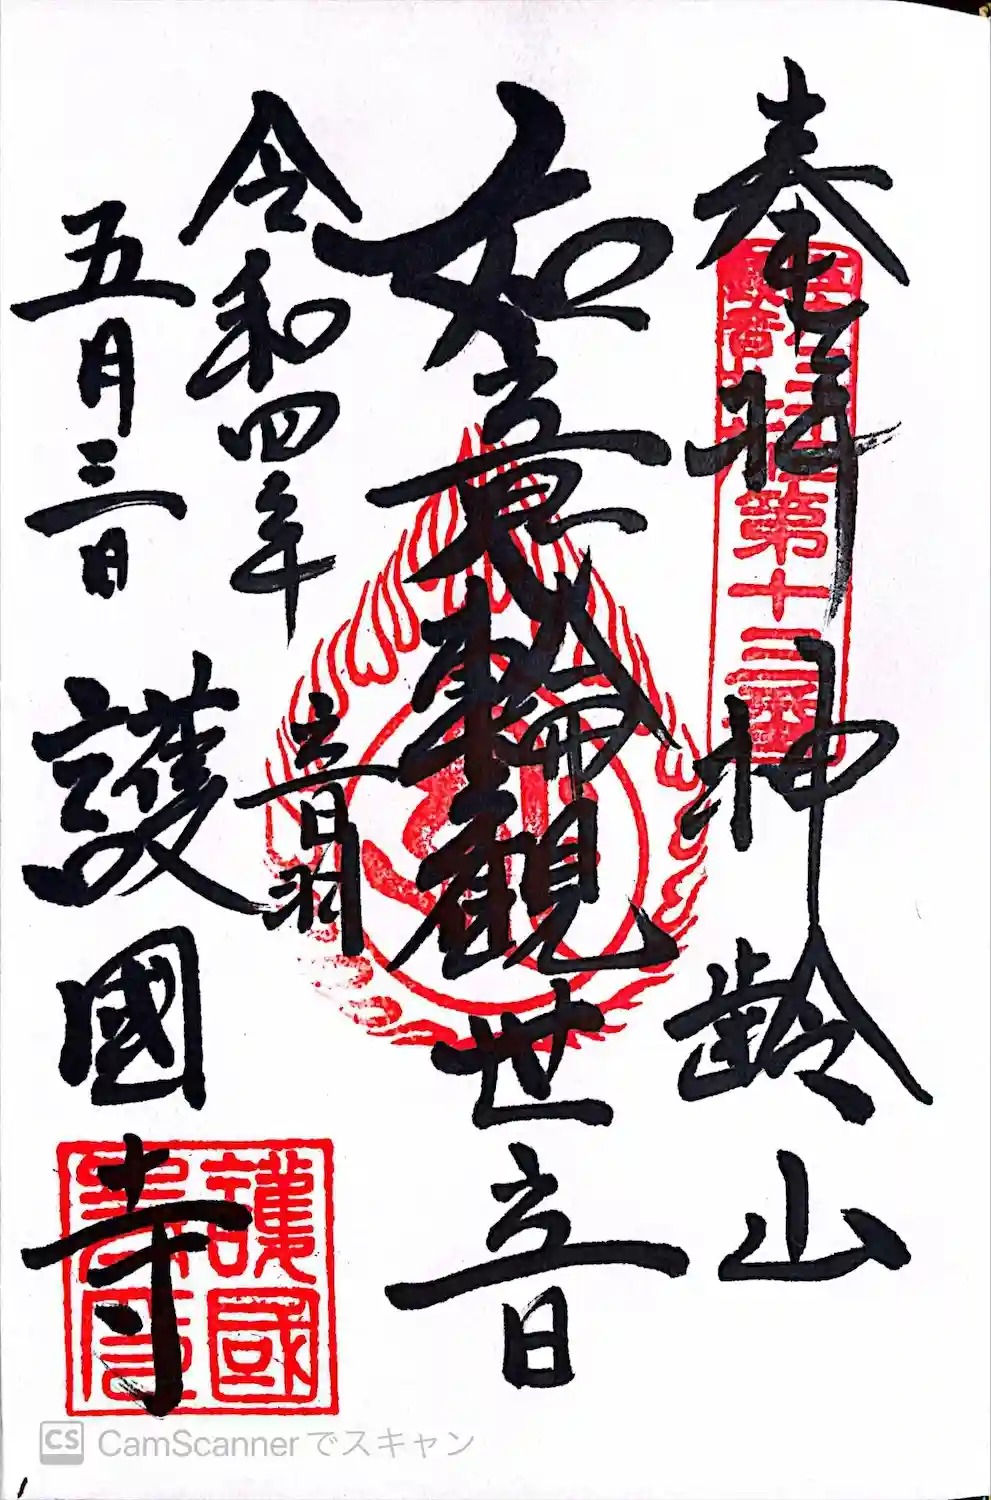 奉拝 神齢山
第十三番
如意輪観世音
令和四年
五月三日
音羽
護國寺
護國
寺印
CS CamScannerでスキャン